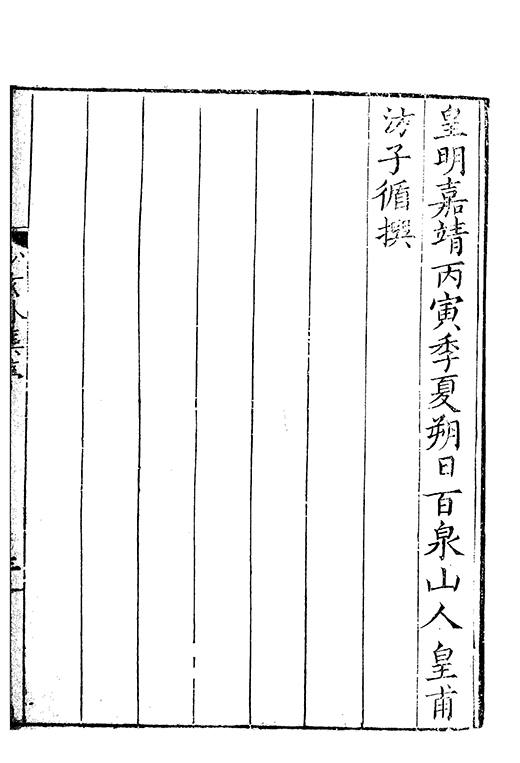 皇明嘉靖丙寅季夏朔日百泉山人皇甫
汸子循撰
少玄外集序